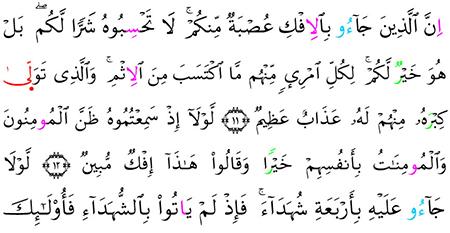 اِنَّ اَلَّذِينَ جَآءُو بِالِافْكِ عُصْبَةٌ مِّنكُمْۚ لَا تَحْسِبُوهُ شَرًّا لَّكُمۖ بَلْ
هُوَ خَيْرٌ لَّكُمْۚ لِكُلِّ اِمْرِيٕٖ مِّنْهُم مَّا اَكْتَسَبَ مِنَ اَلِاثْمِۚ وَالَّذِى تَوَلّىٰ
كِبْرَهُۥ مِنْهُمْ لَهُۥ عَذَابٌ عَظِيمٌ ۝١١ لَّوْلَآ إِذْ سَمِعْتُمُوهُ ظَنَّ اَلْمُومِنُونَ
وَالْمُومِنَٰتُ بِأَنفُسِهِمْ خَيْرًا وَقَالُوا۟ هَٰذَآ إِفْكٌ مُّبِينٌ ۝١٢ لَّوْلَا
جَآءُو عَلَيْهِ بِأَرْبَعَةِ شُهَدَآءَۚ فَإِذْ لَمْ يَاتُوا۟ بِالشُّهَدَآءِ فَأُو۟لَٰٓئِكَ